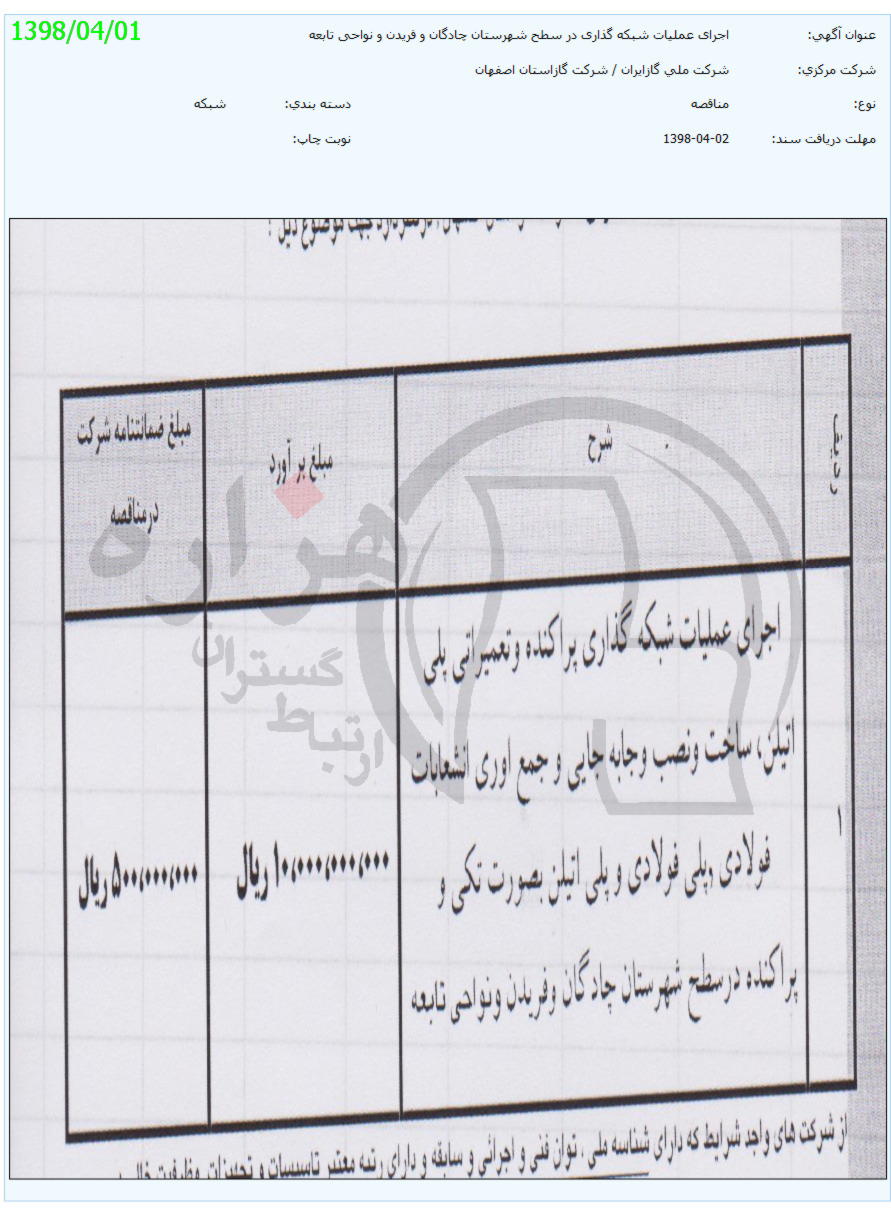 1398/04/01
عنوان آگهي: اجرای عملیات شبکه گذاری در سطح شهرستان چادگان و فریدن و نواحی تابعه
شرکت مرکزي: شرکت ملي گازايران / شرکت گازاستان اصفهان
نوع: مناقصه دسته بندي: شبکه
مهلت دريافت سند: 1398-04-02 نوبت چاپ:
جهت موضوع ذیل :
ردیف شرح مبلغ بر آورد مبلغ ضمانتنامه شرکت
درمناقصه
اجرای عملیات شبکه گذاری پراکنده وتعمیراتی پلی
اتیلن، ساخت ونصب وجابه جایی و جمع اوری انشعابات
۱ فولادی ,پلی فولادی و پلی اتیلن بصورت تکی و ۱۰،۰۰۰،۰۰۰،۰۰۰ ریال ۵۰۰،۰۰۰،۰۰۰ ریال
پراکنده درسطح شهرستان چادگان وفریدن ونواحی تابعه
هزاره
گستران
ارتباط
از شرکت های واجد شرایط که دارای شناسه ملی ، توان فنی و اجرائی و سابقه و دارای رتبه معتبر تاسیسات و تجهیزات